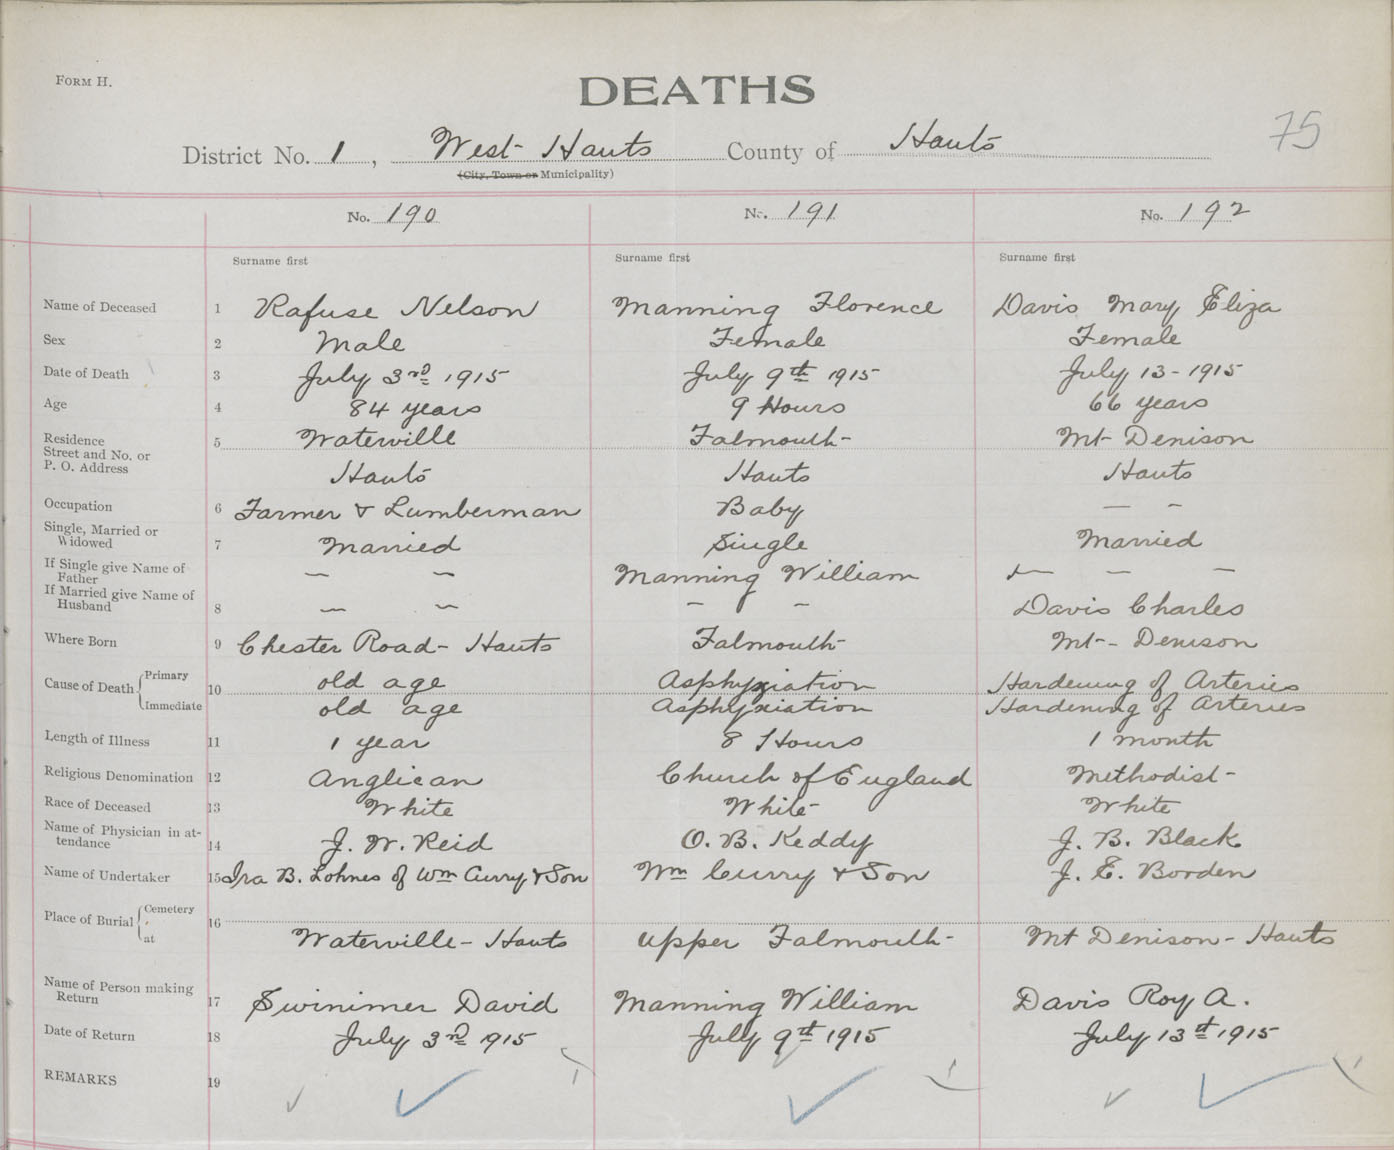 FORM H.
DEATHS
75
District No. 1, West Hants County of Hants
(City, Town or Municipality)
No. 190 No. 191 No. 192
Surname first Surname first Surname first
Name of Deceased 1 Rafuse Nelson Manning Florence Davis Mary Eliza
Sex 2 Male Female Female
Date of Death 3 July 3rd 1915 July 9th 1915 July 13-1915
Age 4 84 years 9 Hours 66 years
Residence 5 Waterville Falmouth Mt Denison
Street and No. or
P. O. Address Hants Hants Hants
Occupation 6 Farmer & Lumberman Baby — -
Single, Married or
Widowed 7 Married Single Married
If Single give Name of
Father — — Manning William — — —
If Married give Name of
Husband 8 — — - - Davis Charles
Where Born 9 Chester Road - Hants Falmouth Mt - Denison
Cause of Death { Primary 10 old age Asphyxiation Hardening of Arteries
Immediate old age Asphyxiation Hardening of Arteries
Length of Illness 11 1 year 8 Hours 1 month
Religious Denomination 12 Anglican Church of England Methodist
Race of Deceased 13 White White White
Name of Physician in at-
tendance 14 J. W. Reid O. B. Keddy J. B. Black
Name of Undertaker 15 Ira B. Lohnes of Wm Curry & Son Wm Curry & Son J. E. Borden
Place of Burial { Cemetery 16
at Waterville - Hants Upper Falmouth Mt Denison - Hants
Name of Person making
Return 17 Swinimer David Manning William Davis Roy A.
Date of Return 18 July 3rd 1915 July 9th 1915 July 13st 1915
REMARKS 19